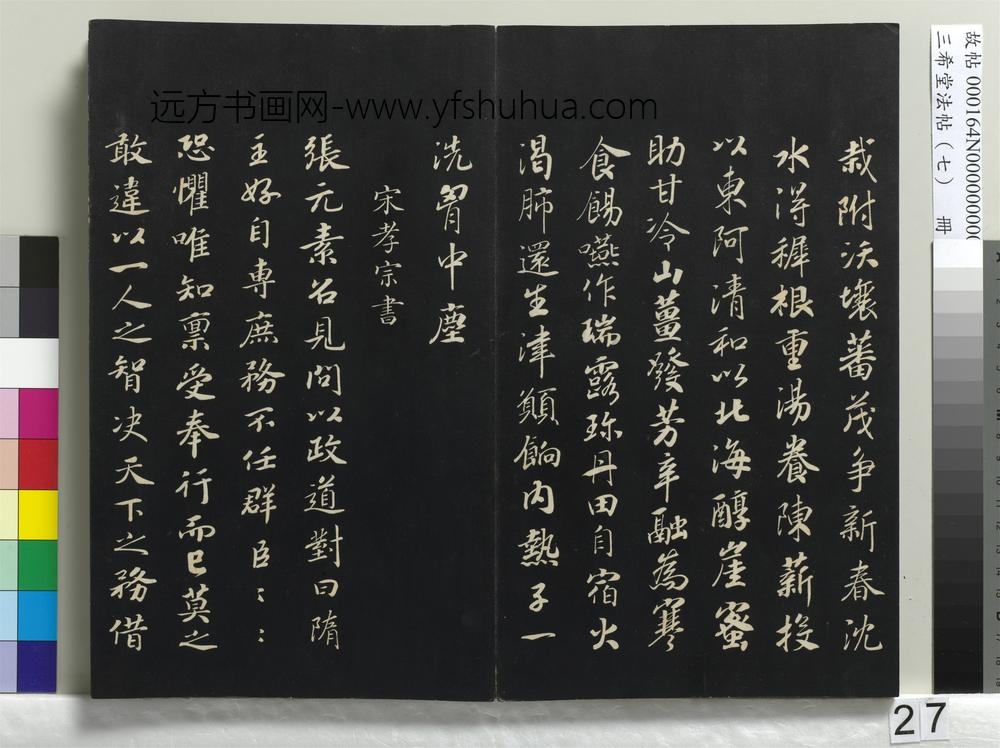 远方书画网-www.yfshuhua.com
栽附沃壤蕃茂争新春沈
水得穉根重湯養陳薪投
以東阿清和以北海醇崖蜜
助甘冷山薑發芳辛融為寒
食餳嚥作瑞露珍丹田自宿火
渴肺還生津願餉內熱子一
洗胷中塵
宋孝宗書
張元素召見問以政道對曰隋
主好自專庶務不任群臣〻〻
恐懼唯知稟受奉行而已莫之
敢違以一人之智決天下之務借
故帖 000164N000000000
三希堂法帖（七） 冊
27